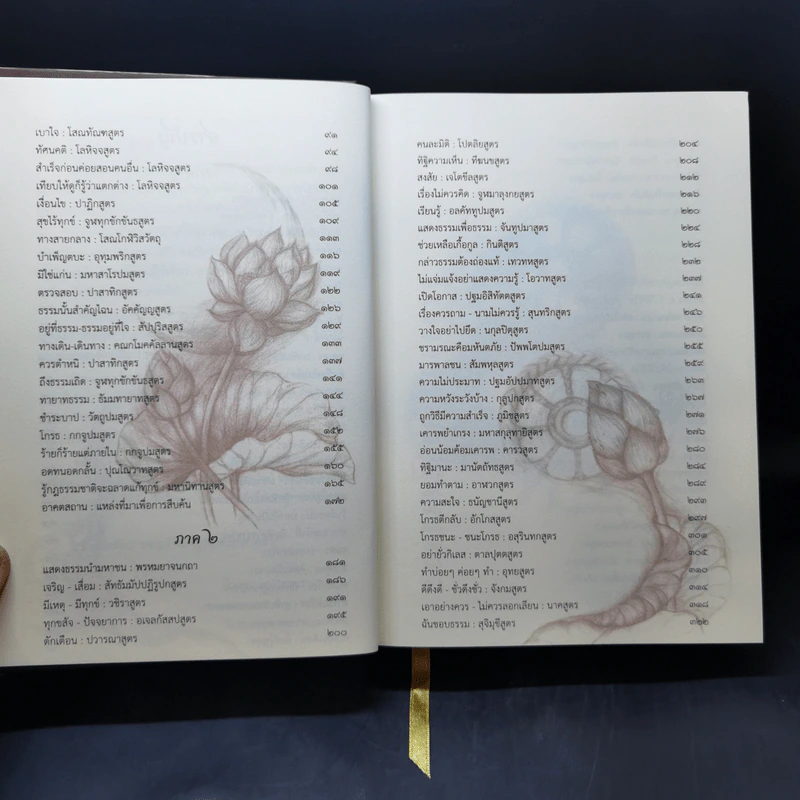 เบาใจ : โสณทัณฑสูตร ๙๑
ทัศนคติ : โลหิจจสูตร ๙๔
สำเร็จก่อนค่อยสอนคนอื่น : โลหิจจสูตร ๙๘
เทียบให้ดูก็รู้ว่าแตกต่าง : โลหิจจสูตร ๑๐๑
เงื่อนไข : ปาฏิกสูตร ๑๐๕
สุขไร้ทุกข์ : จูฬทุกขักขันธสูตร ๑๐๙
ทางสายกลาง : โสณโกฬิวิสวัตถุ ๑๑๓
บำเพ็ญตบะ : อุทุมพริกสูตร ๑๑๖
มิใช่แก่น : มหาสาโรปมสูตร ๑๑๙
ตรวจสอบ : ปาสาทิกสูตร ๑๒๒
ธรรมนั้นสำคัญไฉน : อัคคัญญสูตร ๑๒๖
อยู่ที่ธรรม-ธรรมอยู่ที่ใจ : สัปปุริสสูตร ๑๒๙
ทางเดิน-เดินทาง : คณกโมคคัลลานสูตร ๑๓๓
ควรตำหนิ : ปาสาทิกสูตร ๑๓๗
ถึงธรรมเถิด : จูฬทุกขักขันธสูตร ๑๔๑
ทายาทธรรม : ธัมมทายาทสูตร ๑๔๔
ชำระบาป : วัตถูปมสูตร ๑๔๘
โกรธ : กกจูปมสูตร ๑๕๒
ร้ายก็ร้ายแต่ภายใน : กกจูปมสูตร ๑๕๕
อดทนอดกลั้น : ปุณโณวาทสูตร ๑๖๐
รู้กฎธรรมชาติจะฉลาดแก้ทุกข์ : มหานิทานสูตร ๑๖๕
อาคตสถาน : แหล่งที่มาเพื่อการสืบค้น ๑๗๒
ภาค ๒
แสดงธรรมนำมหาชน : พรหมยาจนกถา ๑๘๑
เจริญ - เสื่อม : สัทธัมมัปปฏิรูปกสูตร ๑๘๖
มีเหตุ - มีทุกข์ : วชิราสูตร ๑๙๑
ทุกขสัจ - ปัจจยาการ : อเจลกัสสปสูตร ๑๙๕
ตักเตือน : ปวารณาสูตร ๒๐๐
คนละมิติ : โปตลิยสูตร ๒๐๔
ทิฐิความเห็น : ทีฆนขสูตร ๒๐๘
สงสัย : เจโตขีลสูตร ๒๑๒
เรื่องไม่ควรคิด : จูฬมาลุงกยสูตร ๒๑๖
เรียนรู้ : อลคัททูปมสูตร ๒๒๐
แสดงธรรมเพื่อธรรม : จันทูปมาสูตร ๒๒๔
ช่วยเหลือเกื้อกูล : กินติสูตร ๒๒๘
กล่าวธรรมต้องถ่องแท้ : เทวทหสูตร ๒๓๒
ไม่แจ่มแจ้งอย่าแสดงความรู้ : โอวาทสูตร ๒๓๗
เปิดโอกาส : ปฐมอิสิทัตตสูตร ๒๔๑
เรื่องควรถาม - นามไม่ควรรู้ : สุนทริกสูตร ๒๔๖
วางใจอย่าไปยึด : นกุลปิตุสูตร ๒๕๐
ชรามรณะคือมหันตภัย : ปัพพโตปมสูตร ๒๕๕
มารพาลชน : สัมพหุลสูตร ๒๕๙
ความไม่ประมาท : ปฐมอัปปมาทสูตร ๒๖๓
ความหวังระวังบ้าง : กุลูปกสูตร ๒๖๗
ถูกวิธีมีความสำเร็จ : ภูมิชสูตร ๒๗๑
เคารพยำเกรง : มหาสกุลุทายิสูตร ๒๗๖
อ่อนน้อมค้อมเคารพ : คารวสูตร ๒๘๐
ทิฐิมานะ : มานัตถัทธสูตร ๒๘๔
ยอมทำตาม : อาฬวกสูตร ๒๘๙
ความสะใจ : ธนัญชานีสูตร ๒๙๓
โกรธตีกลับ : อักโกสสูตร ๒๙๗
โกรธชนะ - ชนะโกรธ : อสุรินทกสูตร ๓๐๑
อย่ายั่วกิเลส : ตาลปุตตสูตร ๓๐๕
ทำบ่อยๆ ค่อยๆ ทำ : อุทยสูตร ๓๑๐
ดีดึงดี - ชั่วดึงชั่ว : จังกมสูตร ๓๑๔
เอาอย่างควร - ไม่ควรลอกเลียน : นาคสูตร ๓๑๘
ฉันชอบธรรม : สุจิมุขีสูตร ๓๒๒